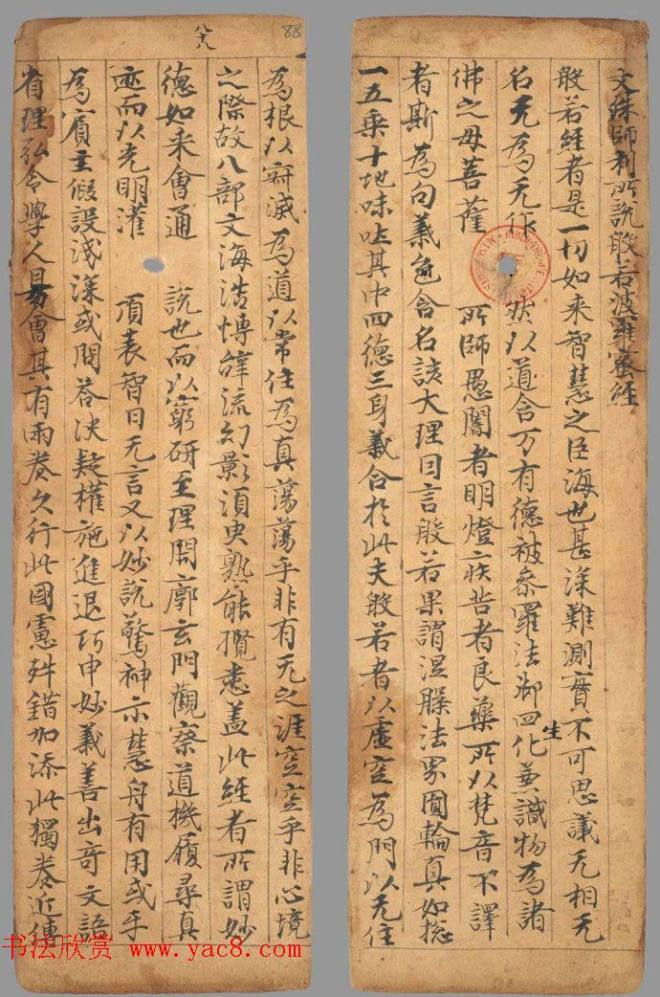 文殊師利所說般若波羅蜜經
般若經者是一切如来智慧之臣海也甚深難測實不可思議无相无
名无為无作 然以道含万有德被叅羅法御四生化兼識物為諸
佛之母菩薩 所師愚闇者明燈疾苦者良藥所以梵音不譯
者斯為句義包含名該大理目言般若果謂涅牒法界圓輪真如捴
一五乗十地味吐其中四德三身義合於此夫般若者以虛空為門以无住
88
為根以寂滅為道以常住為真蕩蕩乎非有无之涯空空乎非心境
之際故八部文海浩愽辭流幻影湏臾熟能攬悉盖此經者所謂妙
德如来會通 說也而以窮研至理開廓玄門觀察道機履尋真
迹而以光明灌 項表智日无言又以妙說驚神示慧舟有用或乎
為賓主假設淺深或問荅决疑權施進退巧申妙義善出竒文語
省理弘令學人易會其有兩卷久行此國憲殊錯加添此獨卷近傳
书法欣赏 www.yac8.com